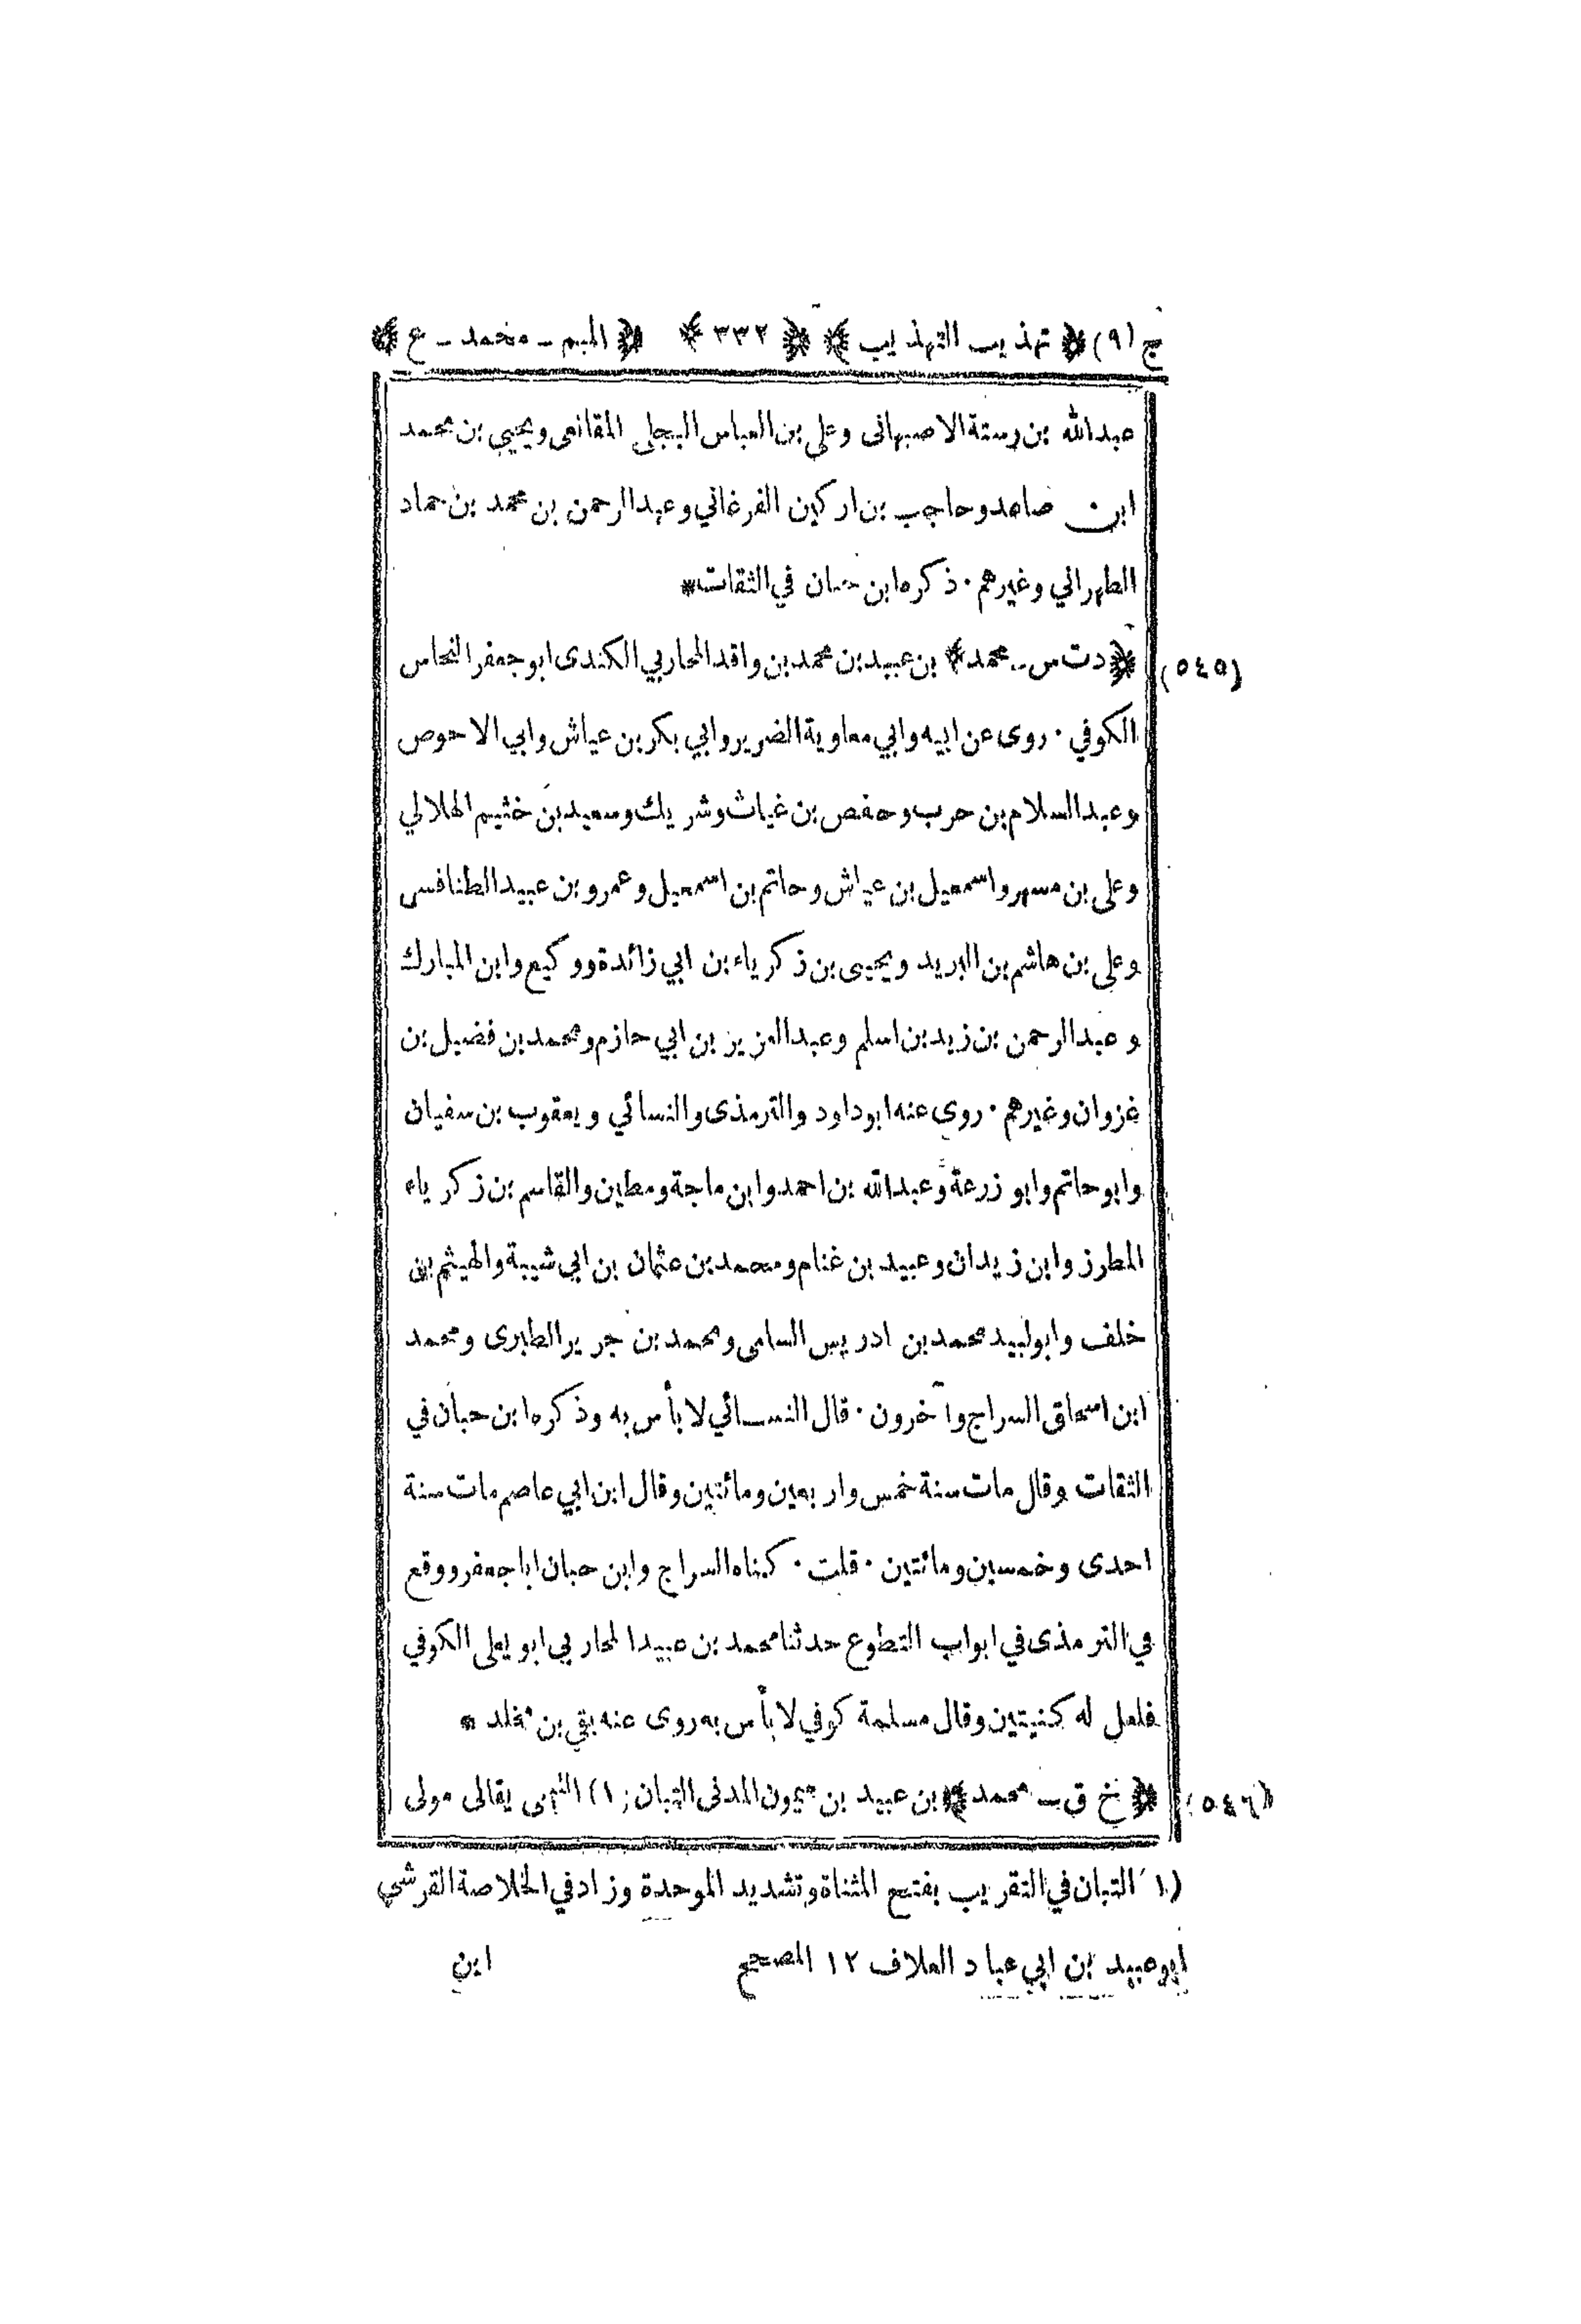 ج (٩) ﴿ تهذيب التهذيب ﴾ ﴿ ٣٣٢ ﴾ ﴿ الميم ـ محمد ـ ع ﴾
عبدالله بن رستة الاصبهانى وعلى بن العباس البجلى المقانعى ويحيى بن محمد
ابن صاعد وحاجب بن اركين الفرغاني وعبدالرحمن بن محمد بن حماد
الطهراني وغيرهم ۰ ذكره ابن حبان في الثقات *
(٥٤٥) ﴿ د ت س ـ محمد ﴾ بن عبيد بن محمد بن واقد المحاربي الكندى ابوجعفر النحاس
الكوفي ۰ روى عن ابيه وابي معاوية الضرير وابي بكر بن عياش وابي الاحوص
وعبدالسلام بن حرب وحفص بن غياث وشريك وسعيد بن خثيم الهلالي
وعلى بن مسهر واسمعيل بن عياش وحاتم بن اسمعيل وعمرو بن عبيد الطنافسى
وعلى بن هاشم بن البريد ويحيى بن زكرياء بن ابي زائدة ووكيع وابن المبارك
وعبدالرحمن بن زيد بن اسلم وعبدالعزيز بن ابي حازم ومحمد بن فضيل بن
غزوان وغيرهم ۰ روى عنه ابوداود والترمذى والنسائي ويعقوب بن سفيان
وابوحاتم وابو زرعة وعبدالله بن احمد وابن ماجة ومطين والقاسم بن زكرياء
المطرز وابن زيدان وعبيد بن غنام ومحمد بن عثمان بن ابي شيبة والهيثم بن
خلف وابولبيد محمد بن ادريس السامى ومحمد بن جرير الطبرى ومحمد
ابن اسحاق السراج وآخرون ۰ قال النسائي لا بأس به وذكره ابن حبان في
الثقات وقال مات سنة خمس واربعين ومائتين وقال ابن ابي عاصم مات سنة
احدى وخمسين ومائتين ۰ قلت ۰ كناه السراج وابن حبان اباجعفر ووقع
في الترمذى في ابواب التطوع حدثنا محمد بن عبيد المحاربي ابو يعلى الكوفي
فلعل له كنيتين وقال مسلمة كوفي لا بأس به روى عنه بقي بن مخلد *
(٥٤٦) ﴿ خ ق ـ محمد ﴾ بن عبيد بن ميمون المدنى التبان (١) التيمى يقال مولى
(١) التبان في التقريب بفتح المثناة وتشديد الموحدة وزاد في الخلاصة القرشي
ابوعبيد بن ابي عباد العلاف ١٢ المصحح
ابن